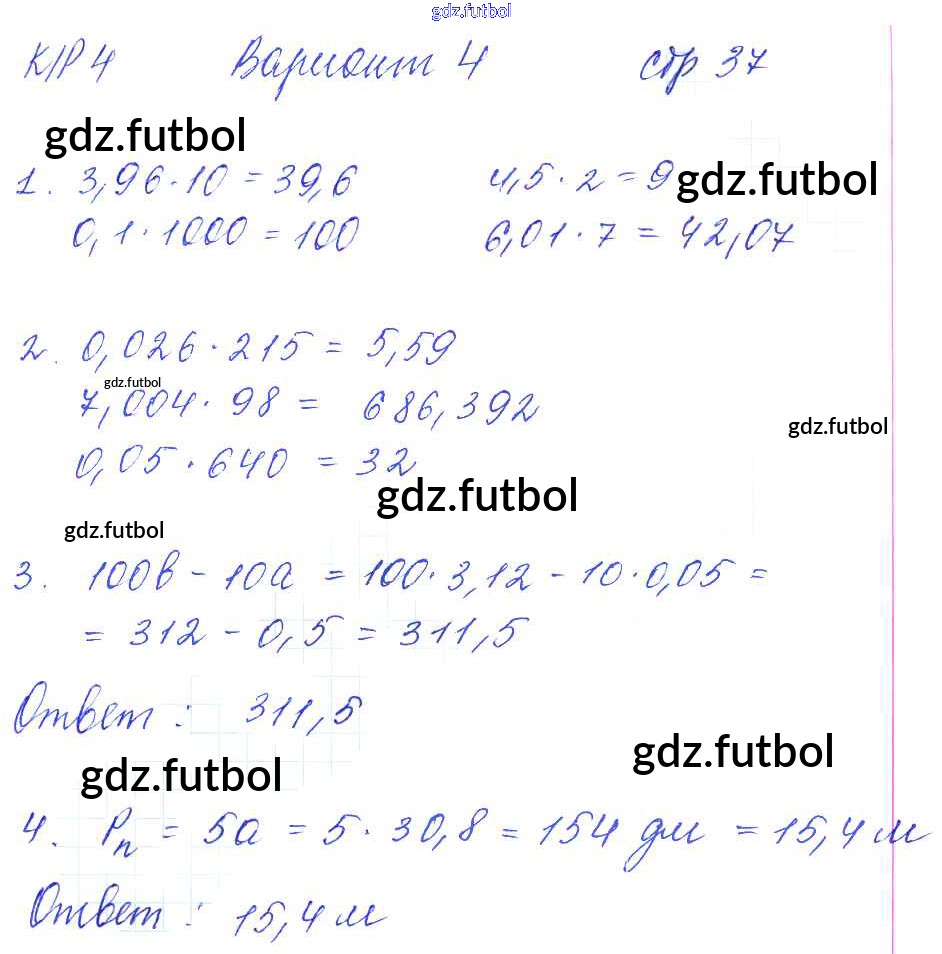 gdz.futbol
К/Р 4 Вариант 4 стр 37
gdz.futbol
1. 3,96·10 = 39,6 4,5·2 = 9 gdz.futbol
0,1·1000 = 100 6,01·7 = 42,07
2. 0,026·215 = 5,59
gdz.futbol
7,004·98 = 686,392
gdz.futbol
0,05·640 = 32
gdz.futbol
gdz.futbol
3. 100в - 10а = 100·3,12 - 10·0,05 =
= 312 - 0,5 = 311,5
Ответ: 311,5
gdz.futbol
gdz.futbol
4. Pп = 5а = 5·30,8 = 154 дм = 15,4 м
Ответ: 15,4 м